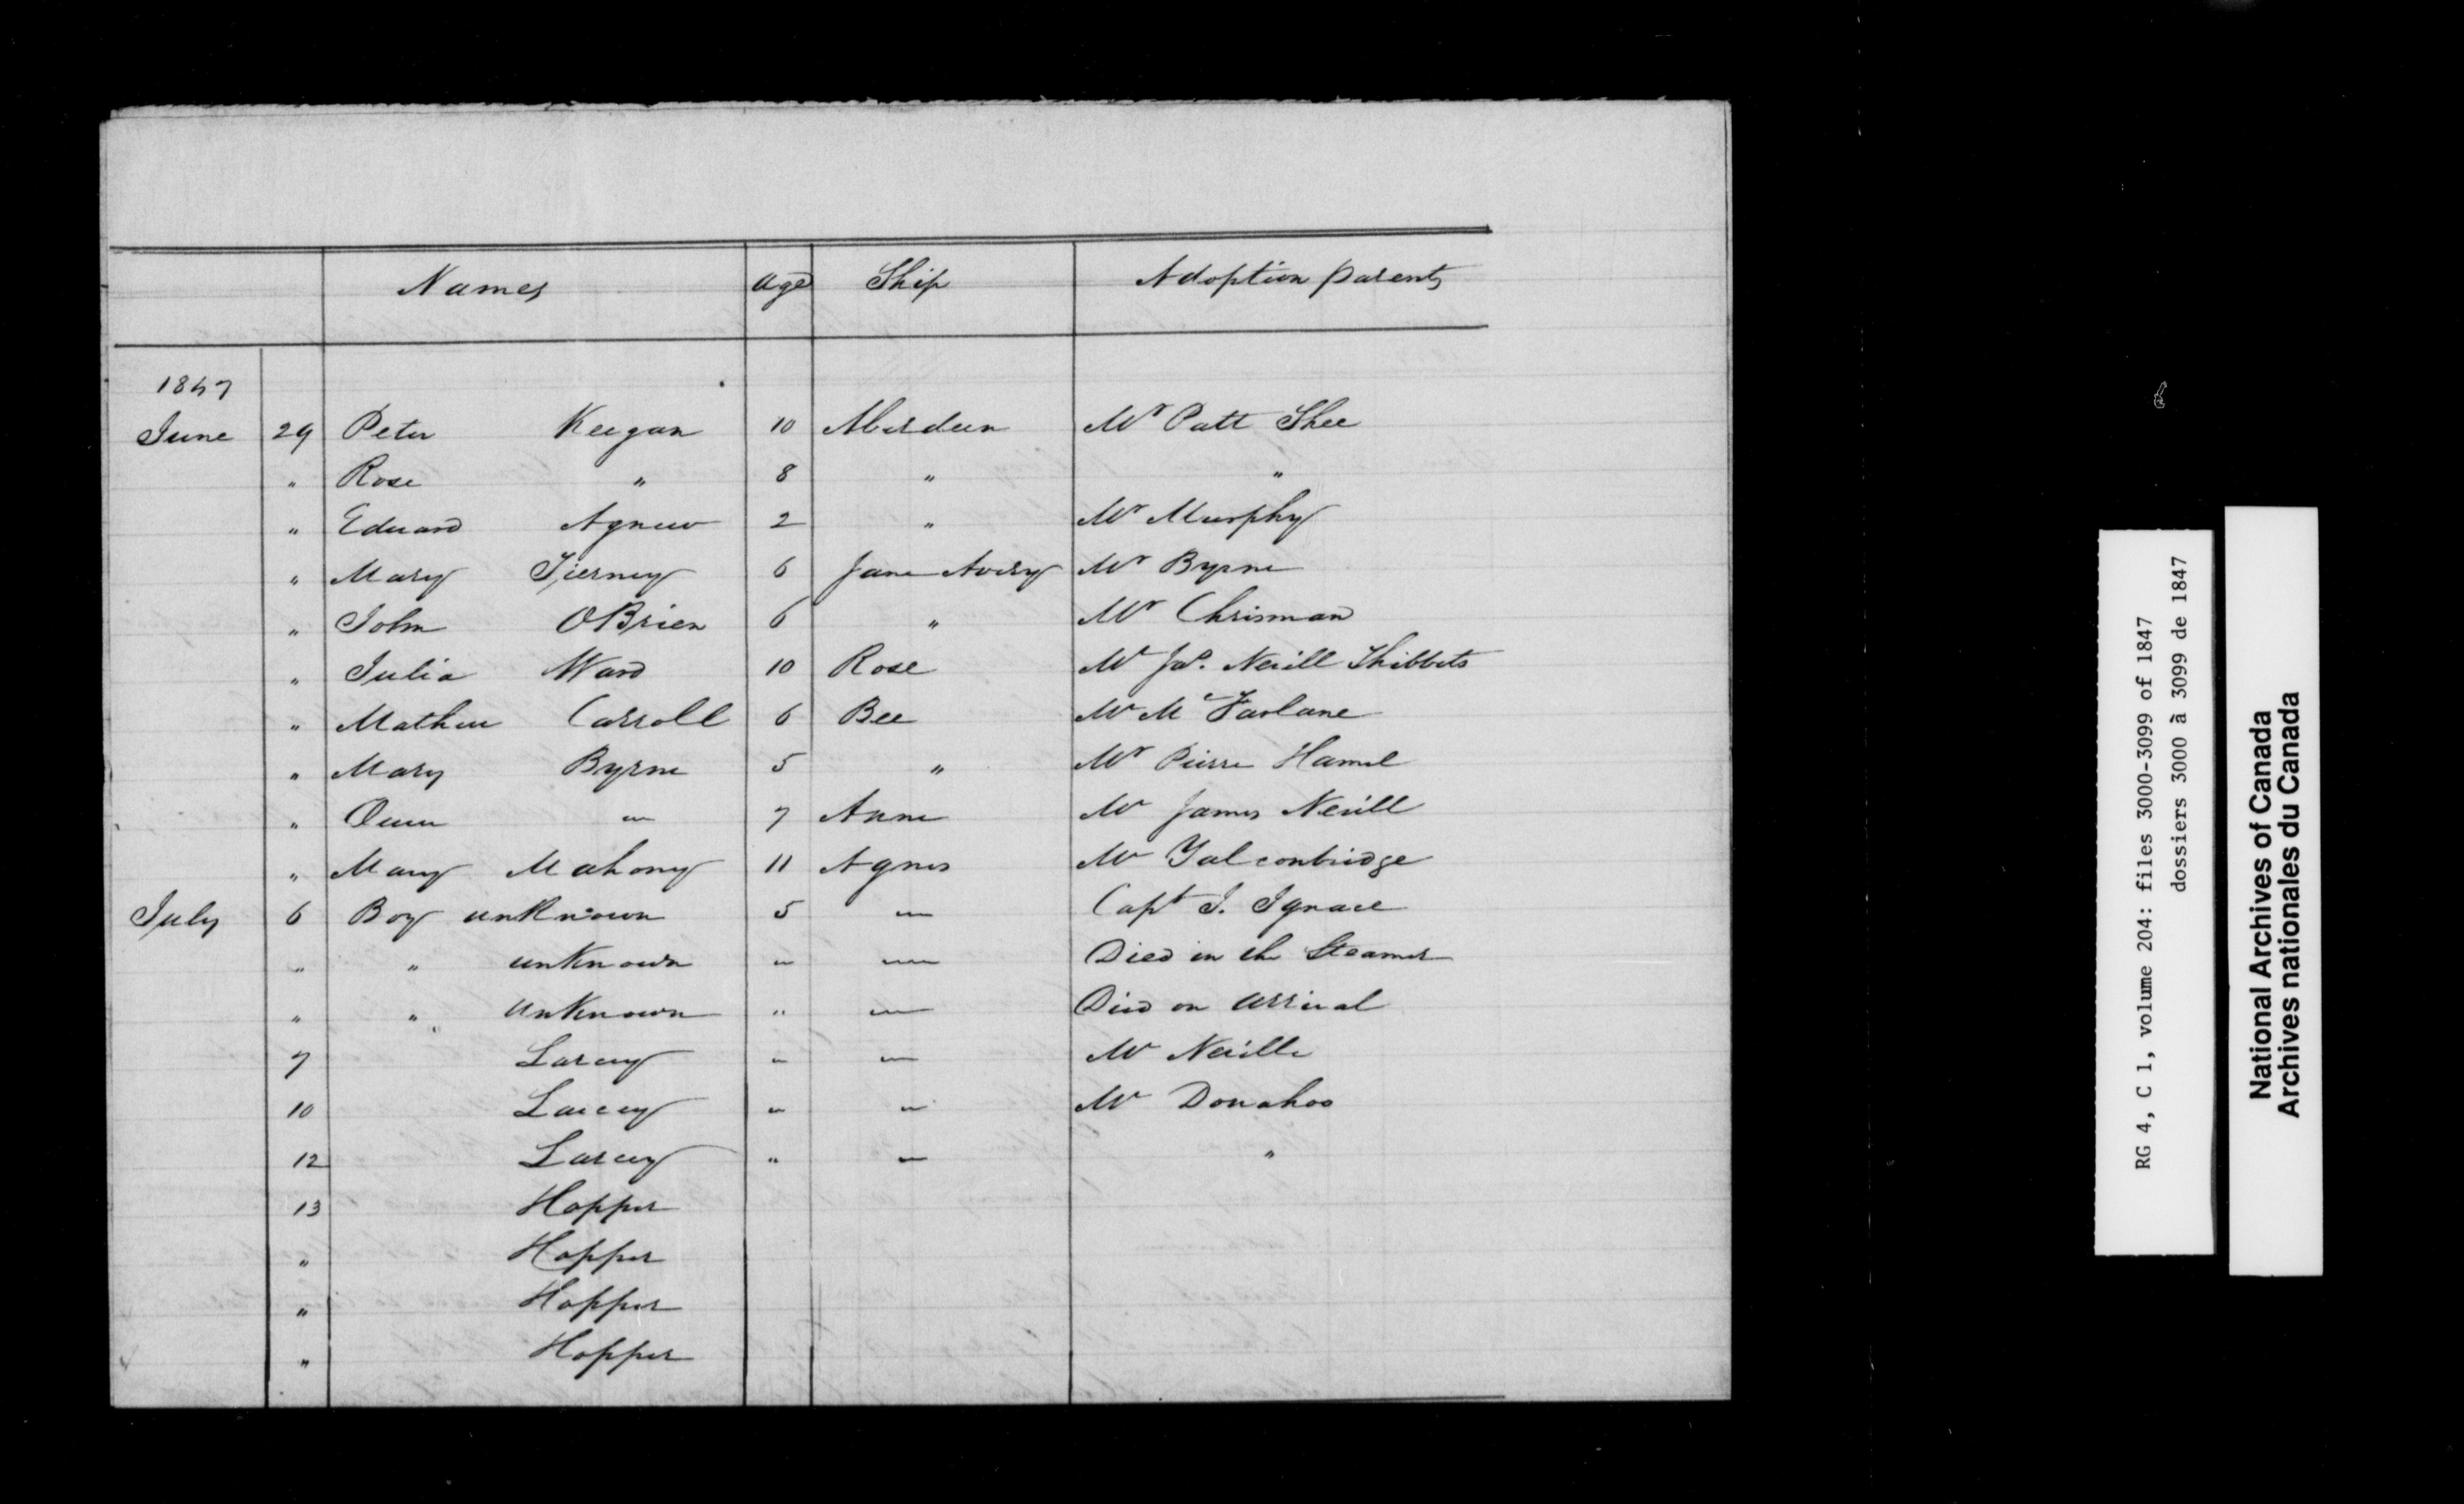 Names Age Ship Adoption parents
1847
June 29 Peter Keegan 10 Aberdeen Mr Patt Shee
" Rose " 8 " "
" Edward Agnew 2 " Mr Murphy
" Mary Tierney 6 Jane Avery Mr Byrne
" John OBrien 6 " Mr Chrisman
" Julia Ward 10 Rose Mr Jas. Nevill Thibbets
" Mathew Carroll 6 Bee Mr McFarlane
" Mary Byrne 5 " Mr Pierre Hamel
" Owen " 7 Anne Mr James Nevill
" Mary Mahony 11 Agnes Mr Falconbridge
July 6 Boy unknown 5 — Capt I. Ignace
" " unknown — — Died in the Steamer
" " unknown " — Died on arrival
7 Larcey — — Mr Neville
10 Larcey — — Mr Donahoo
12 Larcey " — "
13 Hopper
" Hopper
" Hopper
" Hopper
RG 4, C 1, volume 204: files 3000-3099 of 1847
dossiers 3000 à 3099 de 1847
National Archives of Canada
Archives nationales du Canada